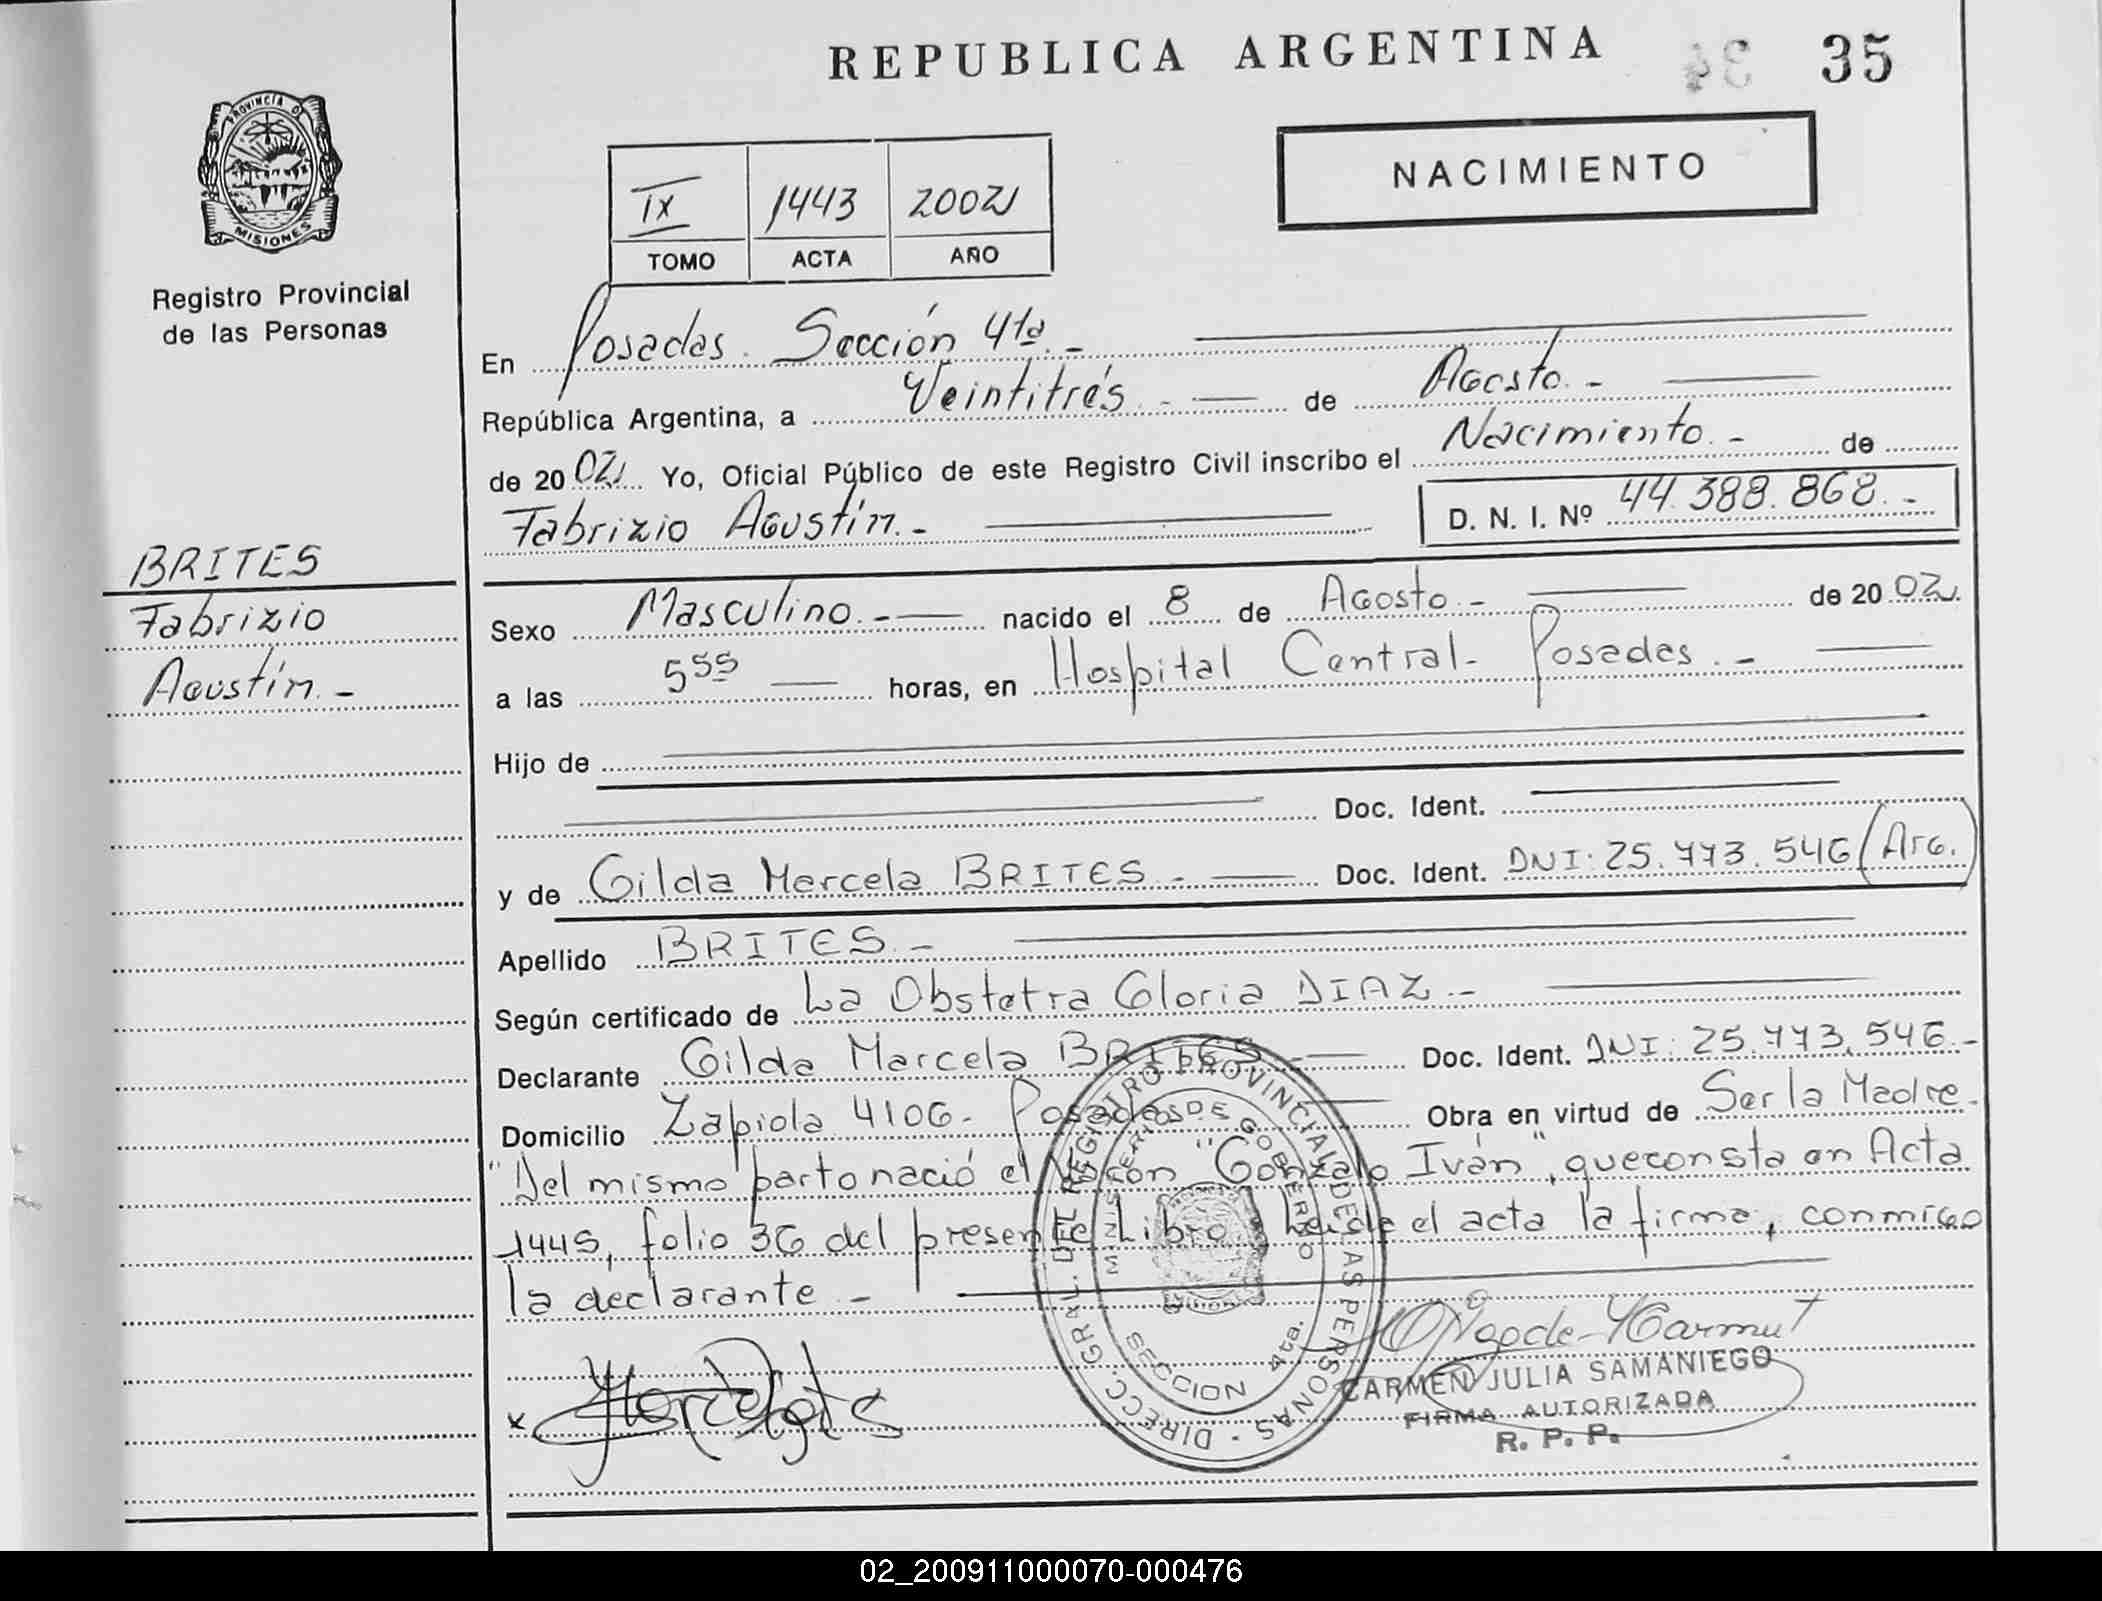 REPUBLICA ARGENTINA
35
PROVINCIA DE
MISIONES
Registro Provincial
de las Personas
IX 1443 2002
TOMO ACTA AÑO
NACIMIENTO
En Posadas. Sección 4ta.-
República Argentina, a Veintitrés.- de Agosto.-
de 2002 Yo, Oficial Público de este Registro Civil inscribo el Nacimiento.- de
Fabrizio Agustín.- D. N. I. Nº 44.388.868.-
BRITES
Fabrizio
Agustín.-
Sexo Masculino.- nacido el 8 de Agosto.- de 2002.
a las 5 55 horas, en Hospital Central- Posadas.-
Hijo de
Doc. Ident.
y de Gilda Marcela BRITES.- Doc. Ident. DNI: 25.773.546 (Arg.)
Apellido BRITES.-
Según certificado de La Obstetra Gloria DIAZ.-
Declarante Gilda Marcela BRITES.- Doc. Ident. DNI: 25.773.546.-
Domicilio Zapiola 4106- Posadas Obra en virtud de Ser la Madre.
"Del mismo parto nació el Varón "Gonzalo Iván", que consta en Acta
1445, folio 36 del presente Libro. Leída el acta la firma, conmigo
la declarante.-
DIRECC. GRAL. DEL REGISTRO PROVINCIAL DE LAS PERSONAS
MINISTERIO DE GOBIERNO
SECCION 4ta.
x
CARMEN JULIA SAMANIEGO
FIRMA AUTORIZADA
R. P. P.
02_200911000070-000476